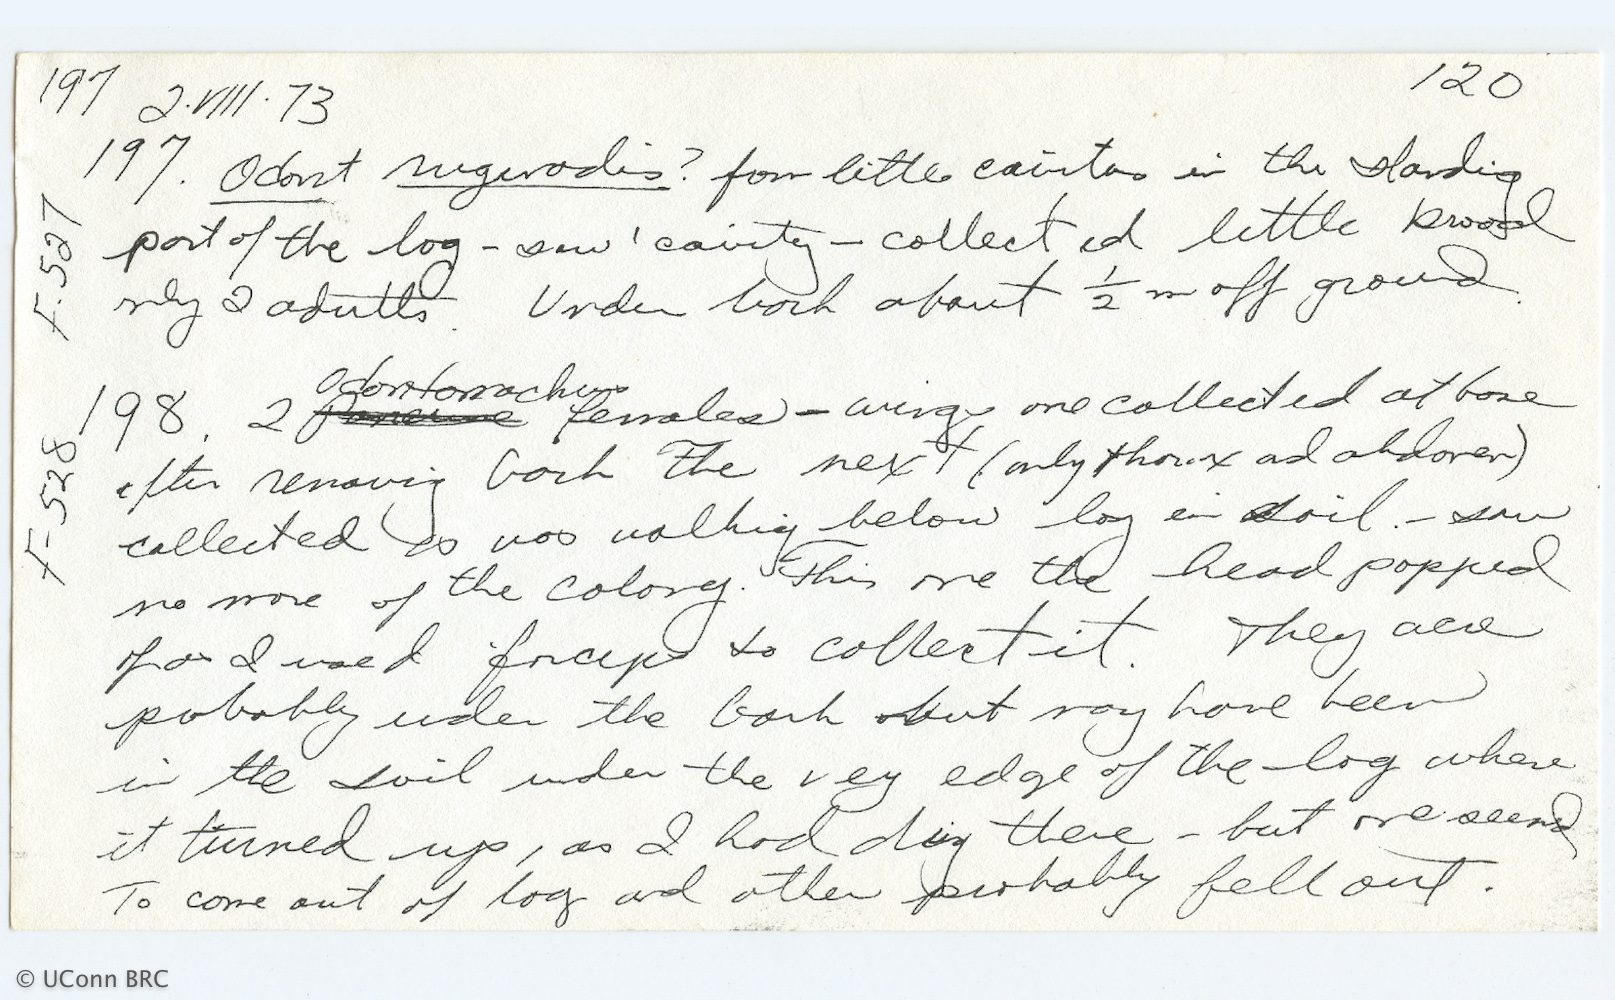 197 2·VIII·73 120
197. Odont ? from little cavities in the standing
F.527
part of the log - saw 1 cavity - collected little brood
only 2 adults. Under bark about 1/2 m off ground.
Odontomachus
198. 2 Ponerine females - wings one collected at base
F-528
after removing bark The next (only thorax and abdomen)
collected as was walking below log in soil. - saw
no more of the colony. This one the head popped
of as I used forceps to collect it. They were
probably under the bark but may have been
in the soil under the very edge of the log where
it turned up, as I had dug there - but one seemed
To come out of log and other probably fell out.
© UConn BRC